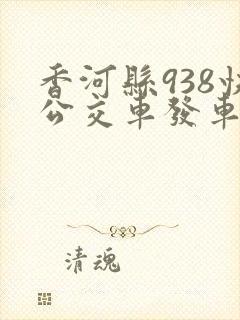 香河縣938快
公交車發車
清魂